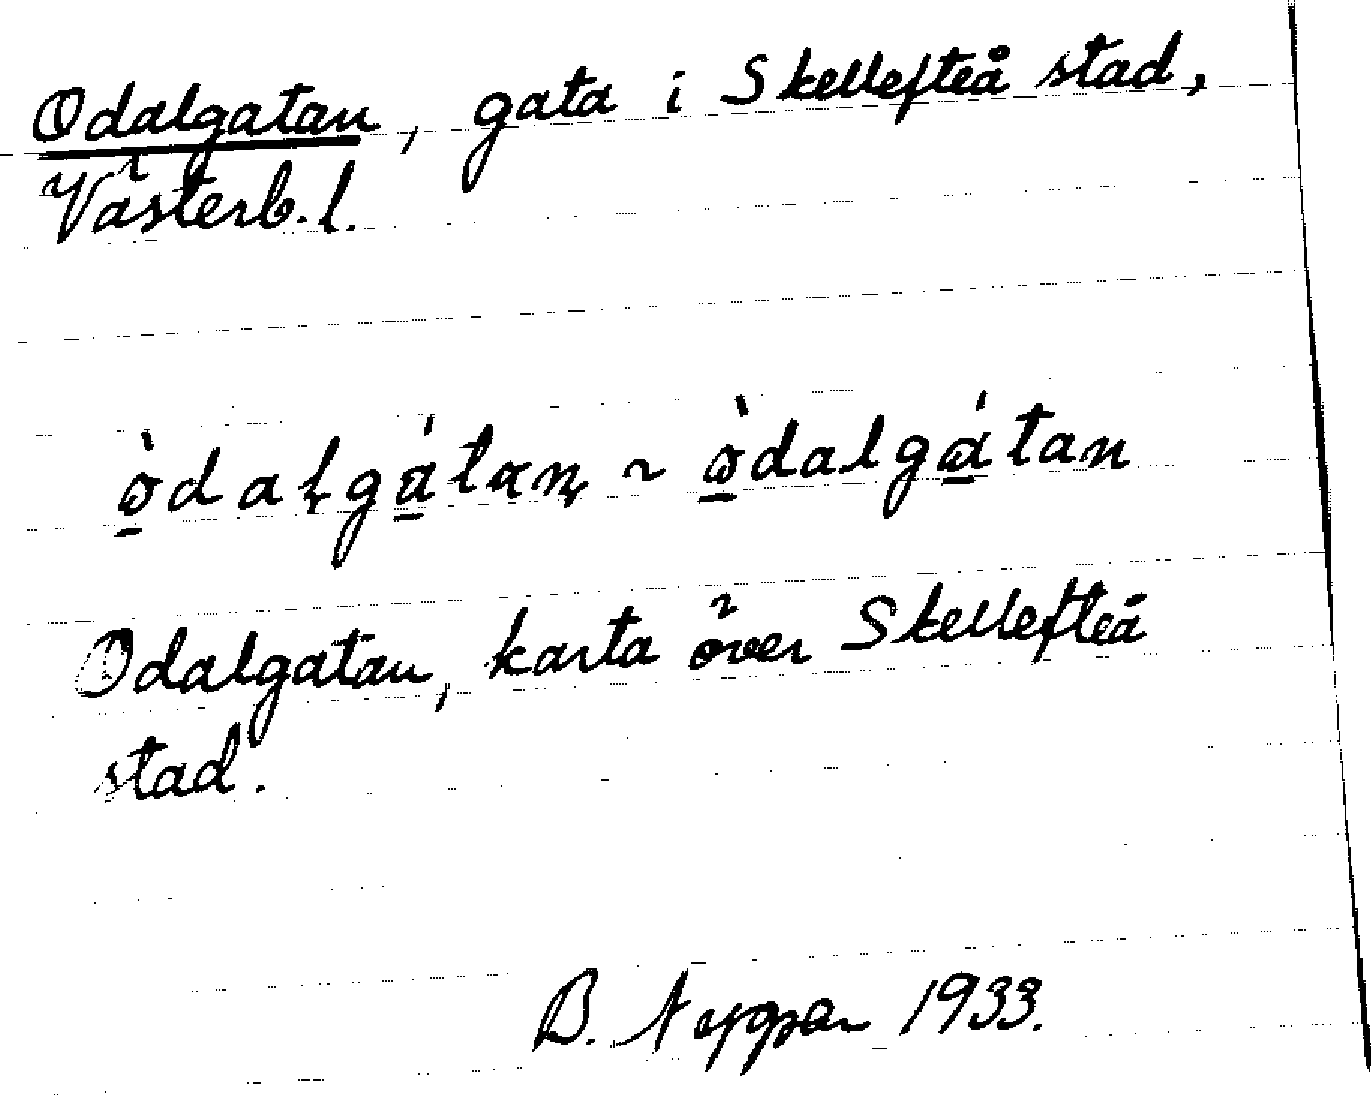 Odalgatan, gata i Skellefteå stad,
Västerb. l.
ò̱dalgá̱tan ~ ò̱dalgá̱tan
Odalgatan, karta över Skellefteå
stad.
B. 1933.